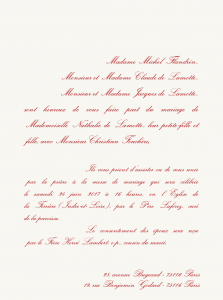 Madame Michel Flandrin,
Monsieur et Madame Claude de Lamotte,
Monsieur et Madame Jacques de Lamotte,
sont heureux de vous faire part du mariage de
Mademoiselle Nathalie de Lamotte, leur petite-fille et
fille, avec Monsieur Christian
Ils vous prient d'assister ou de vous unir
par la prière à la messe de mariage qui sera célébrée
le samedi 24 juin 2017 à 16 heures, en l'Eglise de
la (Indre-et-Loire), par le Père curé
de la paroisse.
Le consentement des époux sera reçu
par le Frère Hervé o.p., cousin du marié.
avenue 75116 Paris
rue Benjamin Godard - 75116 Paris